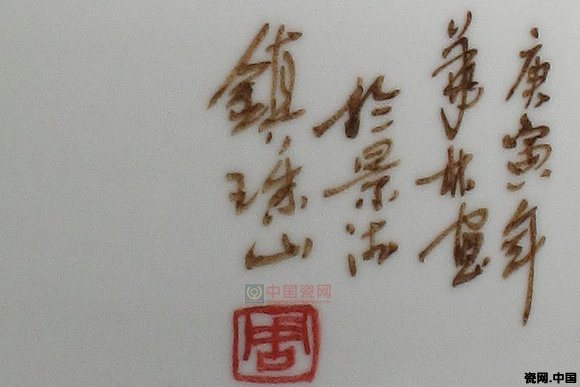 庚寅年
華林画
於景德
鎮珠山
中国瓷网
周
瓷网.中国